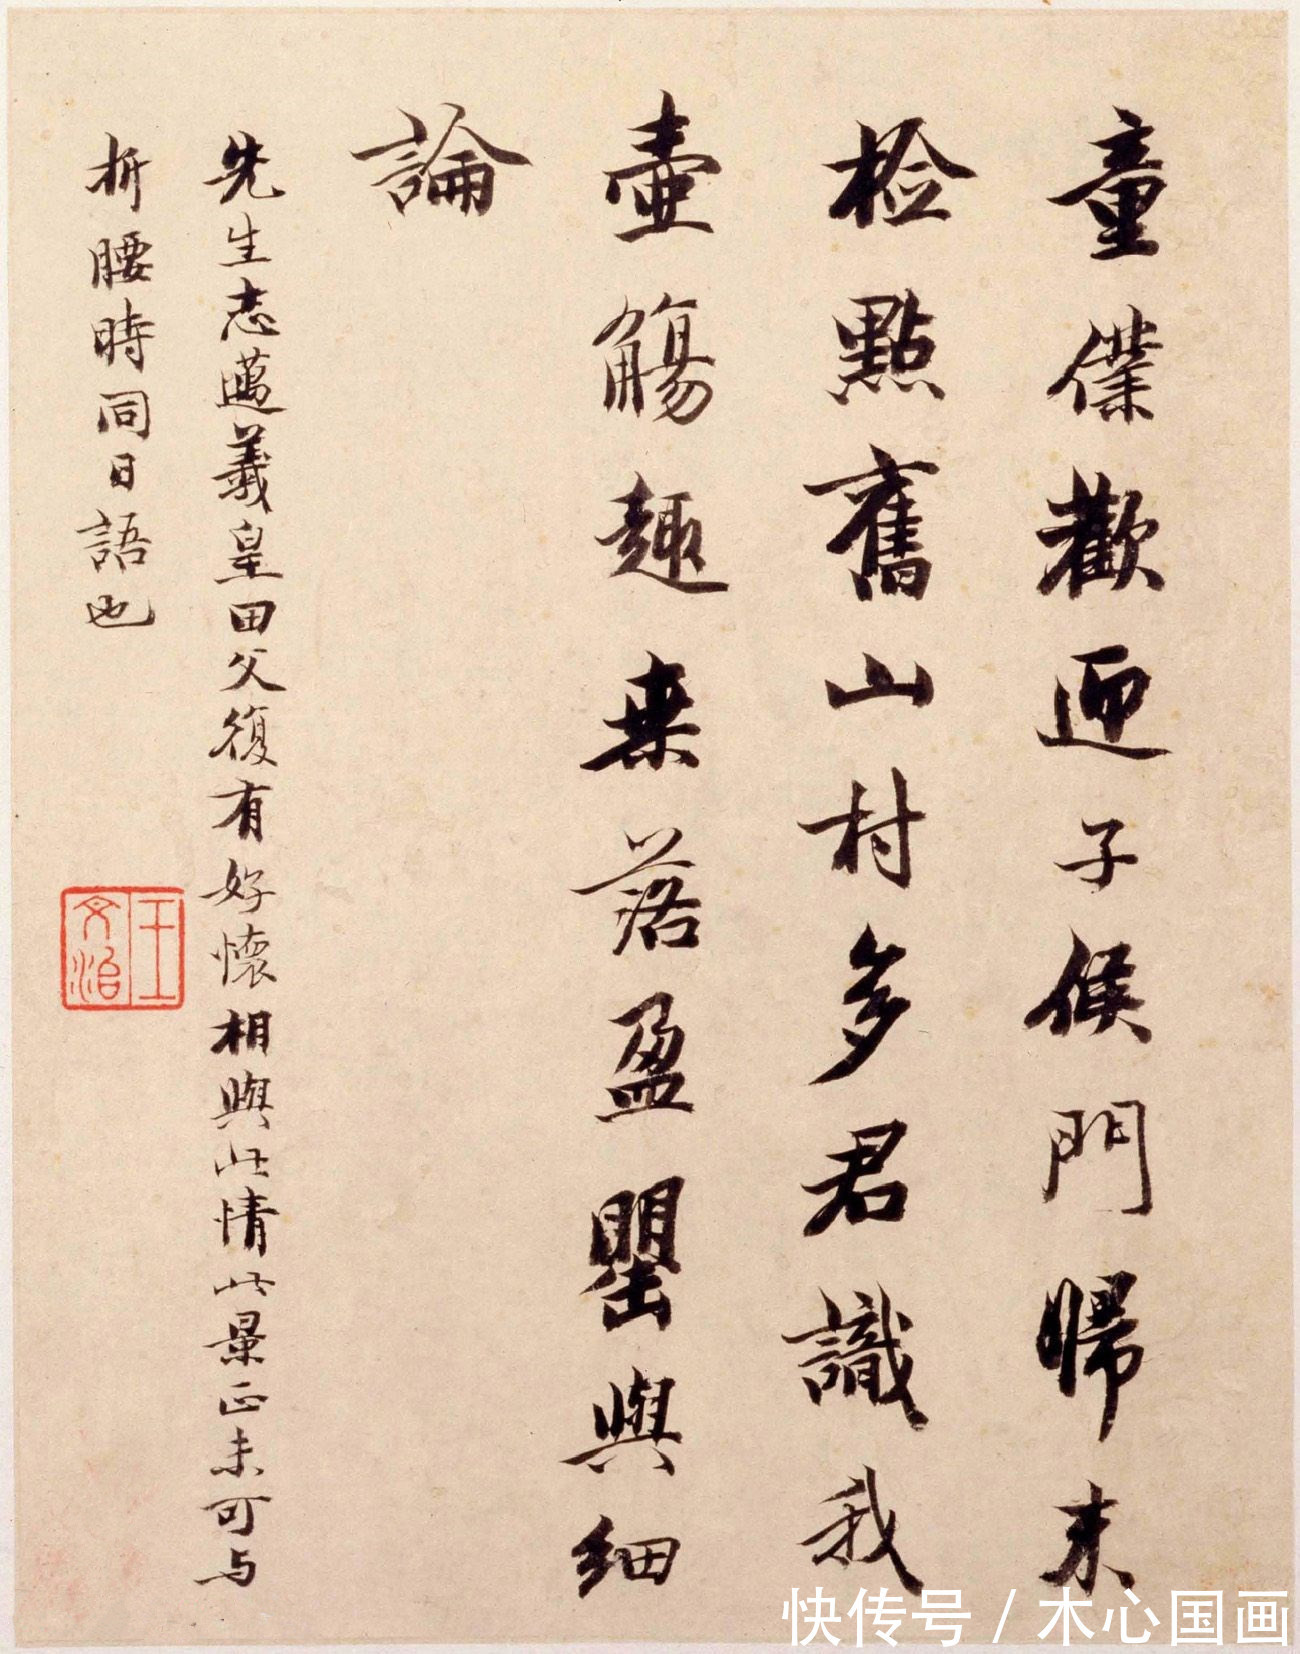 童僕歡迎子候門歸未
检點舊山村多君識我
壷觴趣来落盈罌與細
論
先生志邁羲皇田父復有好懷相與此情此景正未可与
折腰時同日語也
王文治
快传号 / 木心国画